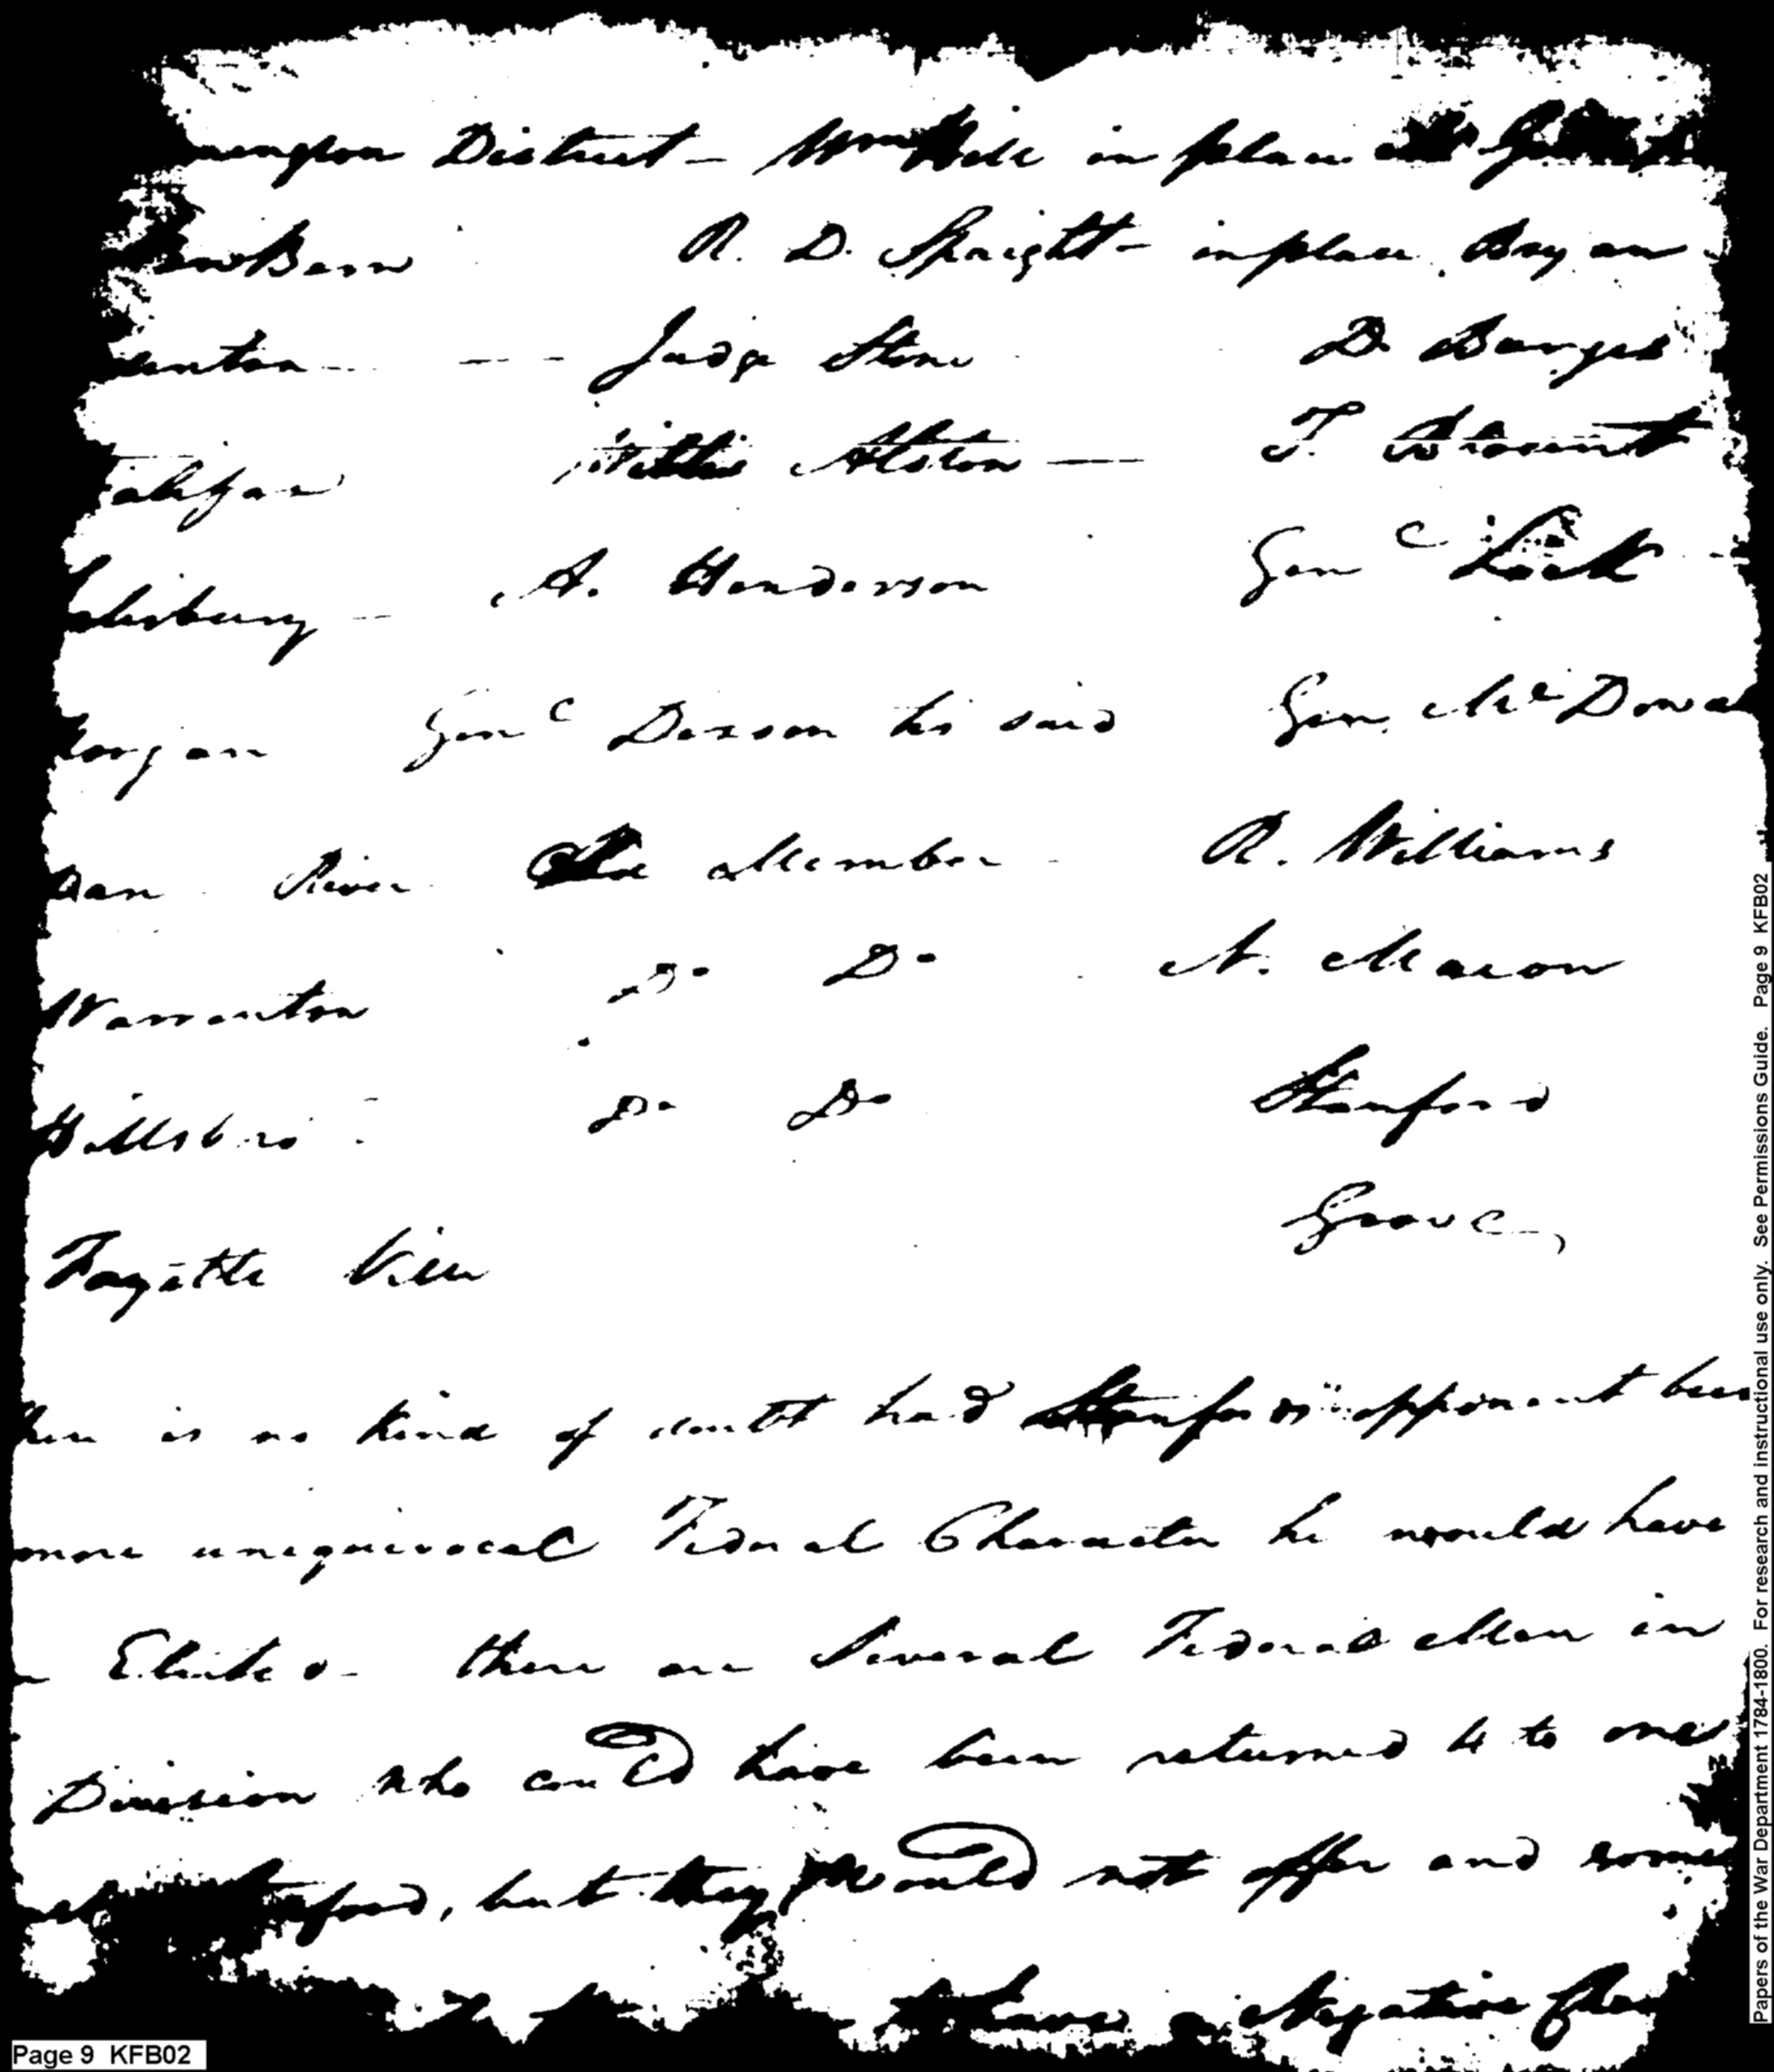 District - Wm Hill in place
NewBern R. D. Spaight - in place Bryan
enton - - - Judge Stone D. Burges
alifax Willis Alston — T. Blount
alisbury - A. Henderson Genl Lock
organ Genl Dixson his said Gen. McDowel
Dan River Old Member - R. Williams
Warrenton Do Do N. Macon
Hillsbro - Do Do Stanford
Fayette Ville Grove,
is no kind of doubt had Stanfords opponent been
more unequivocal Federal Character he would have
Elected - there are Several Federal Men in
Division who could have been returned 4 to one
but they would not offer and some
to have a Negative
Page 9 KFB02
Papers of the War Department 11784-1800. For research and instructional use only. See Permissions Guide. Page 9 KFB02